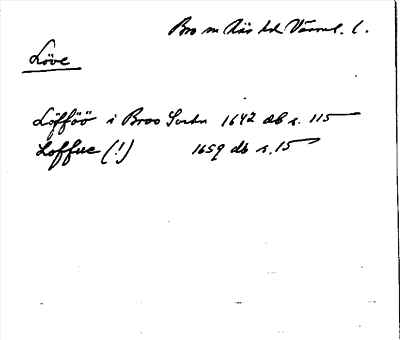 Bro sn Näs hd Värml. l.
Löve
Löfföö i Broo Sochn 1642 db s. 115
Loffue (!) 1659 db s. 15